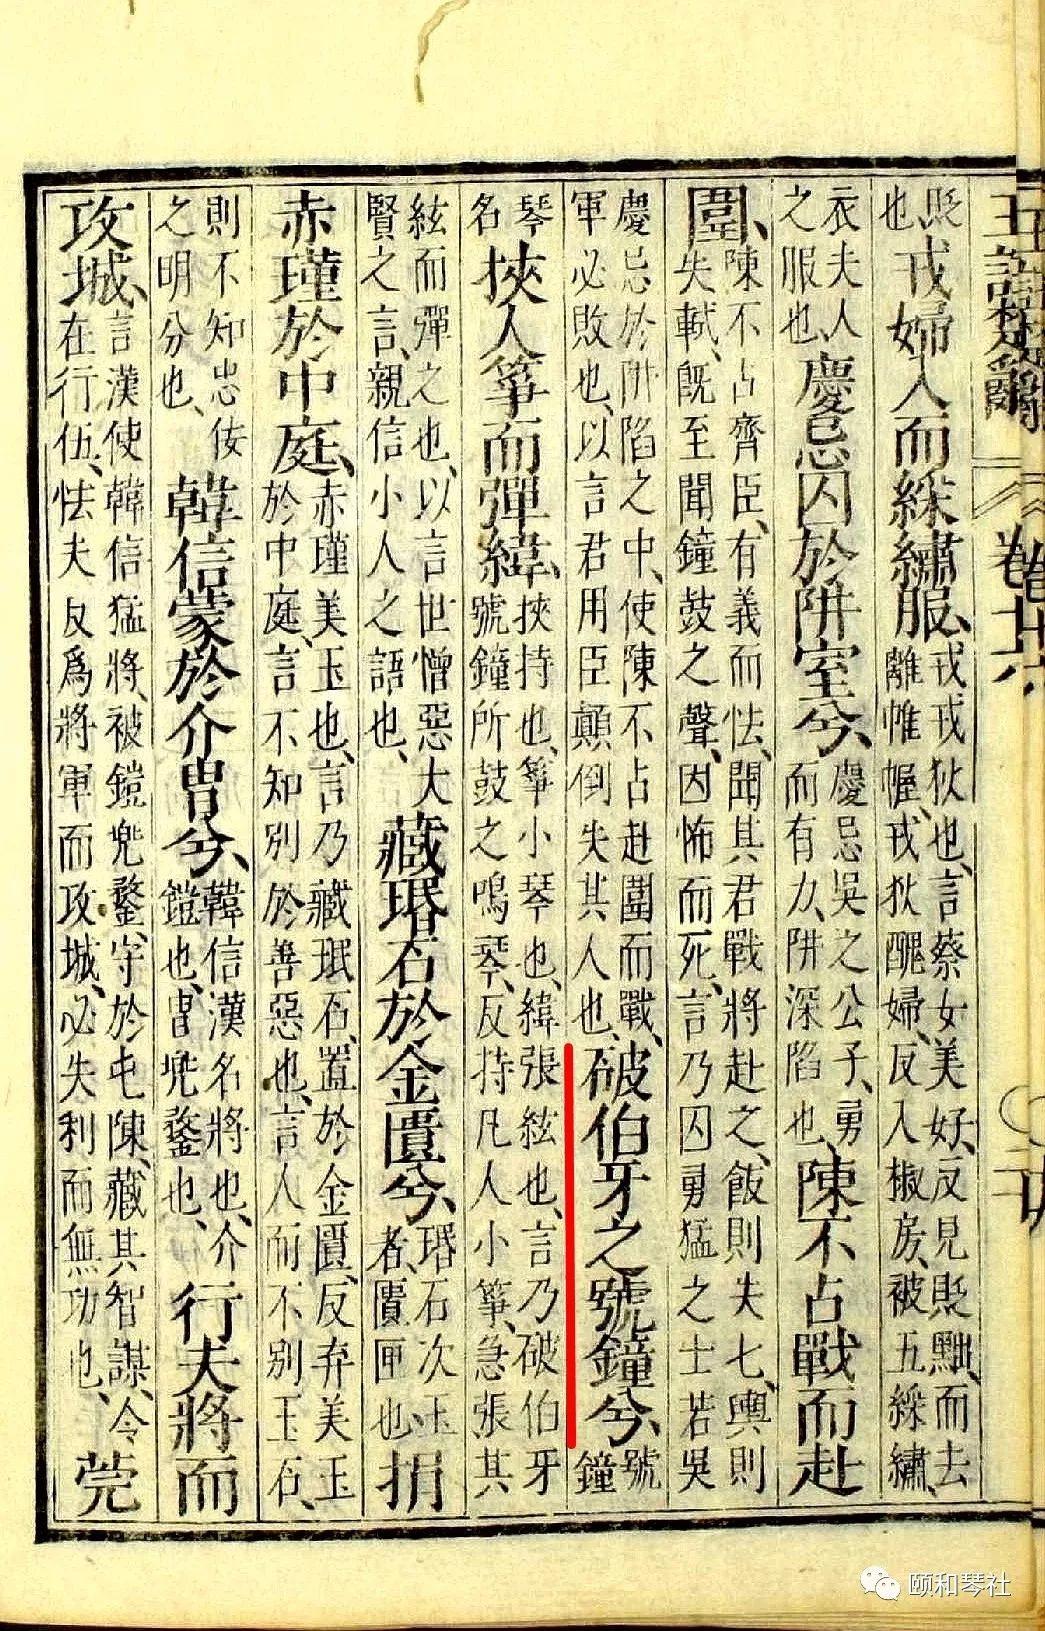 王註楚辭 卷十六
貶也戎婦人而綵繡服、戎戎狄也、言蔡女美好、反見貶黜而去離帷幄、戎狄醜婦、反入椒房、被五綵繡
衣夫人之服也、慶忌囚於阱室兮、慶忌吳之公子、勇而有力、阱深陷也、陳不占戰而赴
圍、陳不占齊臣、有義而怯、聞其君戰將赴之、飯則失七、輿則失軾、旣至聞鐘鼓之聲、因怖而死、言乃囚勇猛之士若吳
慶忌於阱陷之中、使陳不占赴圍而戰、軍必敗也、以言君用臣顛倒失其人也、破伯牙之號鐘兮、號鐘
琴名挾人箏而彈緯、挾持也、箏小琴也、緯張絃也、言乃破伯牙號鐘所鼓之鳴琴、反持凡人小箏、急張其
絃而彈之也、以言世憎惡大賢之言、親信小人之語也、藏瑉石於金匱兮、瑉石次玉者、匱匣也捐
赤瑾於中庭、赤瑾美玉也、言乃藏珉石、置於金匱、反弃美玉於中庭、言不知別於善惡也、言人而不別玉石、
則不知忠佞之明分也、韓信蒙於介胄兮、韓信漢名將也、介鎧也、胄兜鍪也、行夫將而
攻城、言漢使韓信猛將、被鎧兜鍪、守於屯陳、藏其智謀、令在行伍、怯夫反爲將軍而攻城、必失利而無功也、莞
颐和琴社